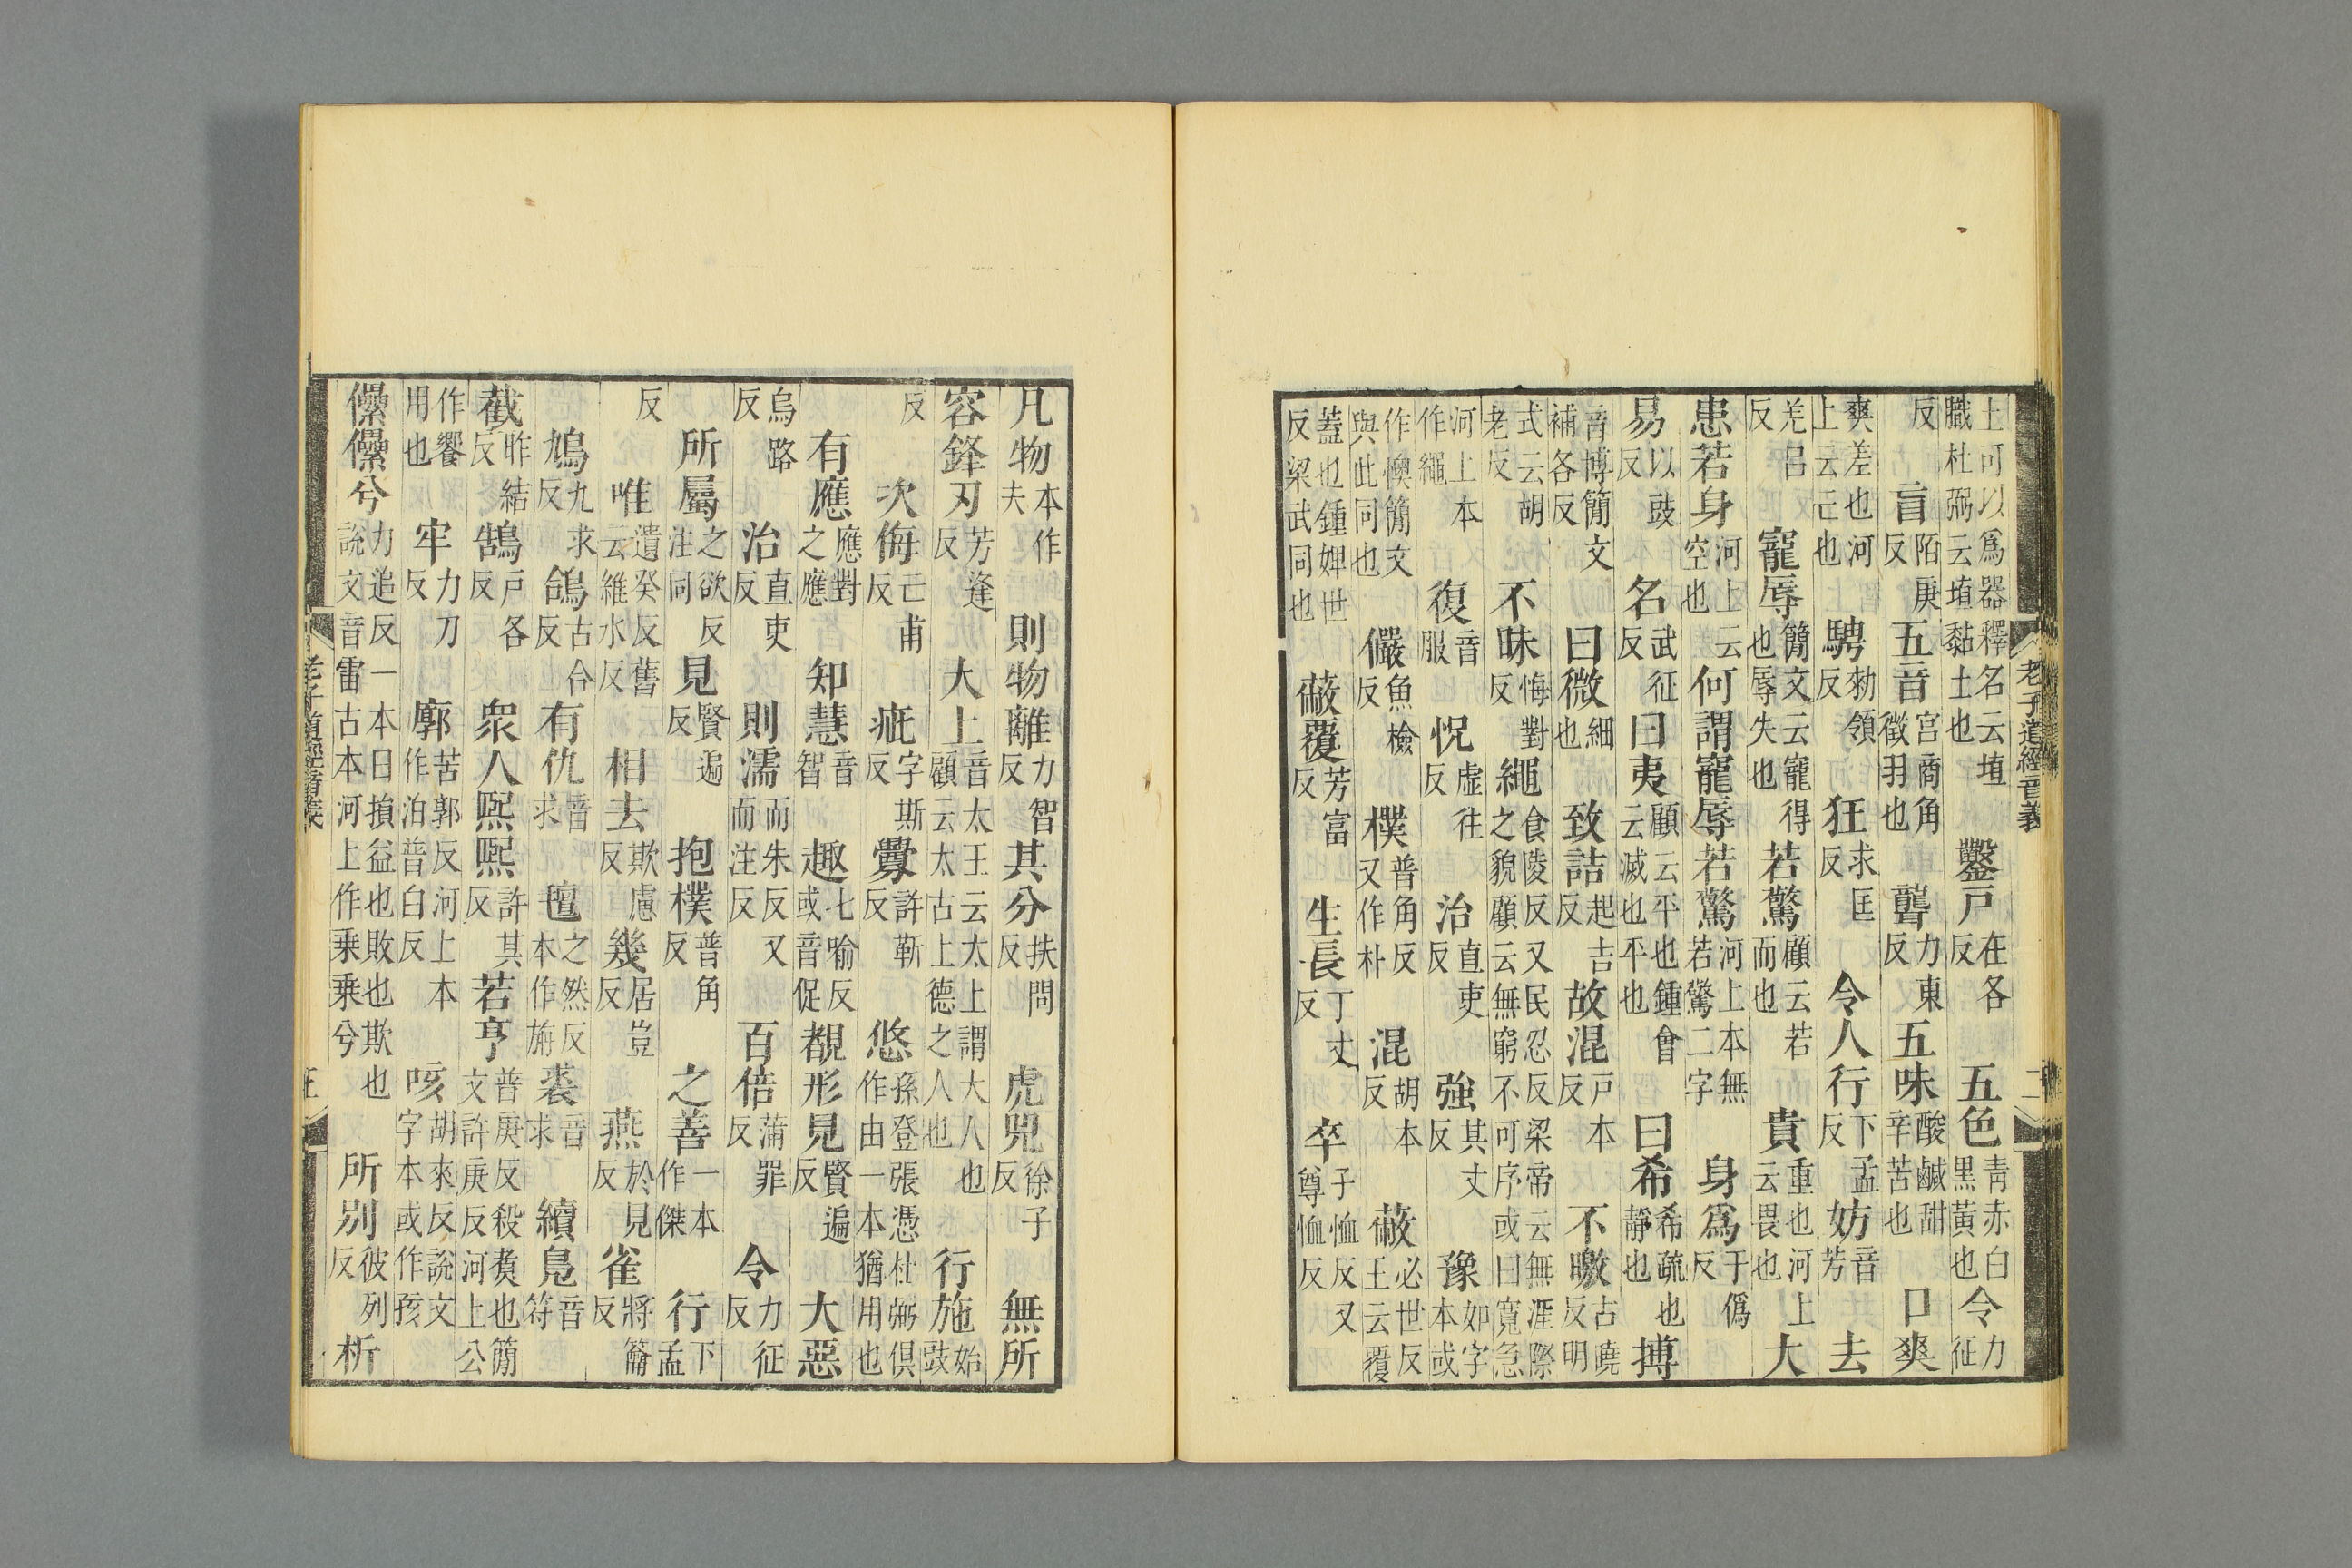 老子道經音義 二
土可以爲器釋名云埴職杜弼云埴黏土也鑿戶在各反五色青赤白黑黃也令力征
反盲陌庚反五音宮商角徵羽也聾力東反五味酸鹹甜辛苦也口爽
爽差也河上云亡也騁勑領反狂求匡反令人行下孟反妨音芳去
羌呂反寵辱簡文云寵得也辱失也若驚顧云若而也貴重也河上云畏也大
患若身河上云空也何謂寵辱若驚河上本無若驚二字身爲于僞反
易以豉反名武征反曰夷顧云平也鍾會云滅也平也曰希希疏也靜也搏
音博簡文補各反曰微細也致詰起吉反故混戶本反不曒古曉反明
式云胡老反不昧悔對反繩食陵反又民忍反梁帝云無涯際之貌顧云無窮不可序或曰寬急
河上本作繩復音服怳虛往反治直吏反強其丈反豫如字本或
作懊簡文與此同也儼魚檢反樸普角反又作朴混胡本反蔽必世反王云覆
蓋也鍾婢世反梁武同也蔽覆芳富反生長丁丈反卒子恤反又尊恤反
凡物本作夫則物離力智反其分扶問反虎兕徐子反無所
容鋒刃芳逢反大上音太王云太上謂大人也顧云太古上德之人也行施始豉
反次侮亡甫反疵字斯反釁許靳反悠孫登張憑杜弼俱作由一本猶用也
有應應對之應知慧音智趣七喻反或音促覩形見賢遍反大惡
烏路反治直吏反則濡而朱反又而注反百倍蒲罪反令力征反
所屬之欲反注同見賢遍反抱樸普角反之善一本作傑行下孟
反唯遺癸反舊云維水反相去欺慮反幾居豈反燕於見反雀將籥反
鳩九求反鴿古合反有仇音求氊之然反本作旃裘音求續鳧音符
截昨結反鵠戶各反眾人熙熙許其反若亨普庚反殺煑也簡文許庚反河上公
作饗用也牢力刀反廓苦郭反河上本作泊普白反咳胡來反說文字本或作孩
儽儽兮力追反一本曰損益也敗也欺也說文音雷古本河上作乘乘兮所別彼列反析
老子道經音義